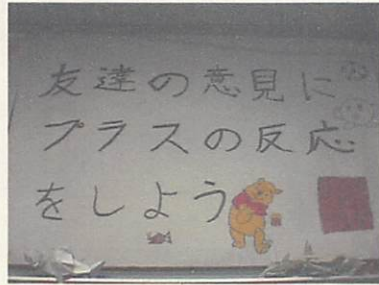 友達の意見に
プラスの反応
をしよう